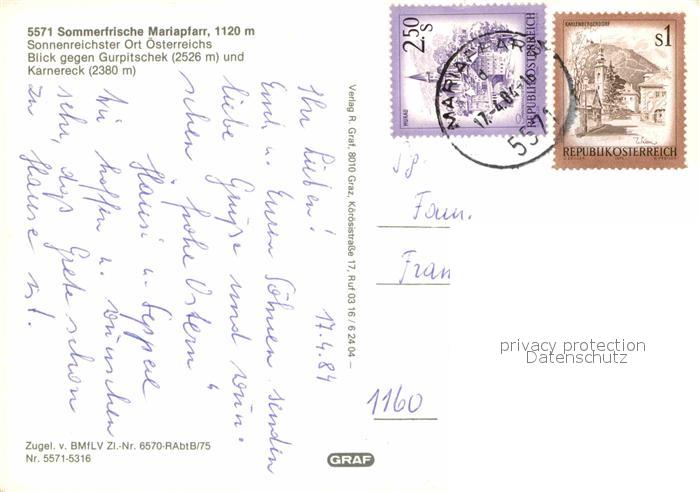 5571 Sommerfrische Mariapfarr, 1120 m
Sonnenreichster Ort Österreichs
Blick gegen Gurpitschek (2526 m) und
Karnereck (2380 m)
17.4.84
Ihr Lieben!
Euch u. Euren Söhnen senden
liebe Grüße und wün-
schen „frohe Ostern“
Hansi u. Sepperl
Wir hoffen u. wünschen
sehr, daß Grete schon
zu Hause ist.
Zugel. v. BMfLV Zl.-Nr. 6570-RAbtB/75
Nr. 5571-5316
Verlag R. Graf, 8010 Graz, Körösistraße 17, Ruf 03 16 / 6 24 04 –
GRAF
2.50 S
MURAU
REPUBLIK ÖSTERREICH
KAHLENBERGERDORF
s1
Wien
REPUBLIK ÖSTERREICH
MARIAPFARR
17.4.84
5571
Fam.
Fran
1160
privacy protection
Datenschutz